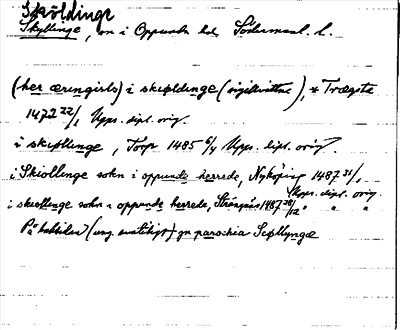 Sköldinge
Skyllinge, sn i Oppunda hd Södermanl. l.
(her æringisls) i skiøldinge (sigillvittne), * Trægsta
1472 22/1 Upps. dipl. orig.
i skiøllinge, Torp 1485 6/4 Upps. dipl. orig.
i Skiollinge sokn i oppunde herrede, Nyköping 1487 31/1
Upps. dipl. orig.
i skiollinge sokn i oppunde herrede, Strängnäs 1487 28/12 " " "
På baksidan (ung. samtidigt) jn parochia Scøllyngæ